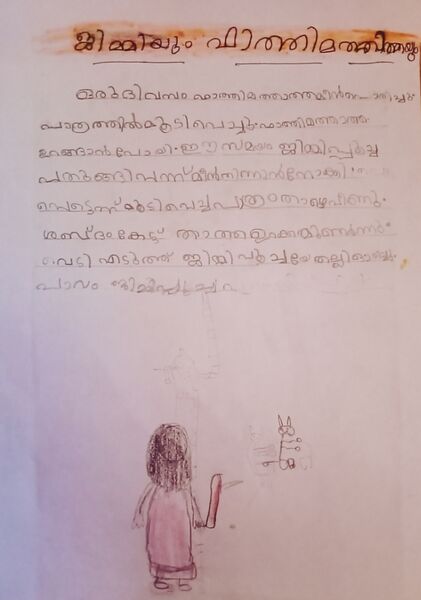 ജിമ്മിയും ഫാത്തിമത്താത്തയും
ഒരുദിവസം ഫാത്തിമത്താത്ത മീൻ
പാത്രത്തിൽ മൂടി വെച്ചു. ഫാത്തിമത്താത്ത
ഉറങ്ങാൻ പോയി. ഈ സമയം ജിമ്മിപ്പൂച്ച
പതുങ്ങി വന്ന് മീൻ തിന്നാൻ നോക്കി.
പെട്ടെന്ന് മൂടി വെച്ച പാത്രം താഴെ വീണു.
ശബ്ദം കേട്ട് താത്ത ഉറക്കമുണർന്നു.
വടി എടുത്ത് ജിമ്മി പൂച്ചയെ തല്ലി ഓടിച്ചു.
പാവം ജിമ്മിപ്പൂച്ച